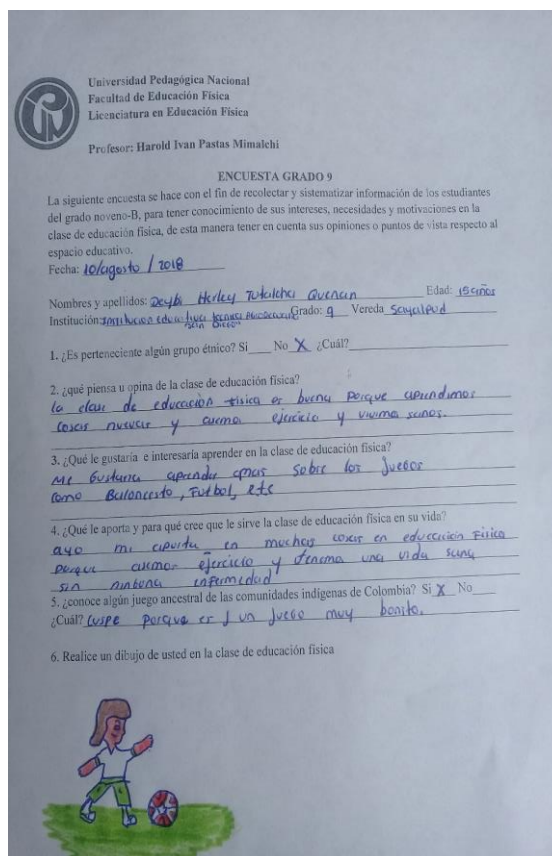 Universidad Pedagógica Nacional
Facultad de Educación Física
Licenciatura en Educación Física
Profesor: Harold Ivan Pastas Mimalchi
ENCUESTA GRADO 9
La siguiente encuesta se hace con el fin de recolectar y sistematizar información de los estudiantes
del grado noveno-B, para tener conocimiento de sus intereses, necesidades y motivaciones en la
clase de educación física, de esta manera tener en cuenta sus opiniones o puntos de vista respecto al
espacio educativo.
Fecha: 10/agosto / 2018
Nombres y apellidos: Deybi Herley Tutalcha Quenan Edad: 15 años
Institución: Institucion educativa tecnica Grado: 9 Vereda
San Diego
1. ¿Es perteneciente algún grupo étnico? Si No X ¿Cuál?
2. ¿qué piensa u opina de la clase de educación física?
la clase de educación fisica es buena porque aprendimos
cosas nuevas y asemo ejercicio y vivimo sanos.
3. ¿Qué le gustaría e interesaría aprender en la clase de educación física?
Me Gustaria aprender mas sobre los Juegos
como Baloncesto, Futbol, etc
4. ¿Qué le aporta y para qué cree que le sirve la clase de educación física en su vida?
ayo mi aporta en muchas cosas en educacion Fisica
porque asemos ejercicio y tenemo una vida sana
sin ninguna enfermedad
5. ¿conoce algún juego ancestral de las comunidades indígenas de Colombia? Si X No
¿Cuál? Cuspe porque es un Juego muy bonito.
6. Realice un dibujo de usted en la clase de educación física